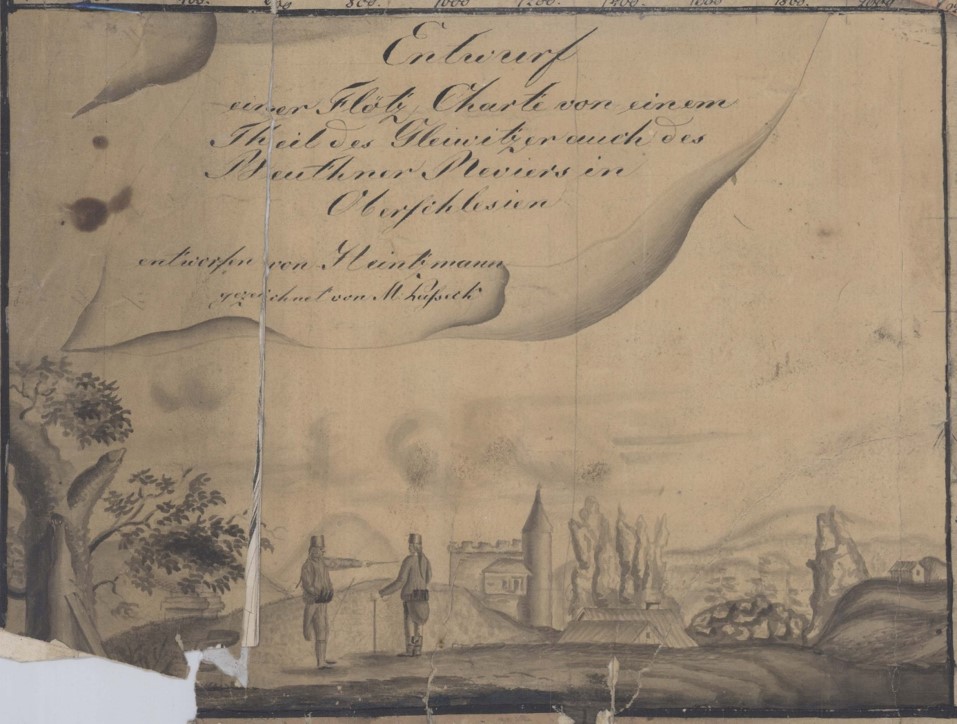 400. 600 800. 1000 1200. 1400. 1600 1800. 2000
Entwurf
einer Flötz Charte von einem
Theil des Gleiwitzer auch des
Beuthner Reviers in
Oberschlesien
entworfen von Heintzmann
gezeichnet von M.